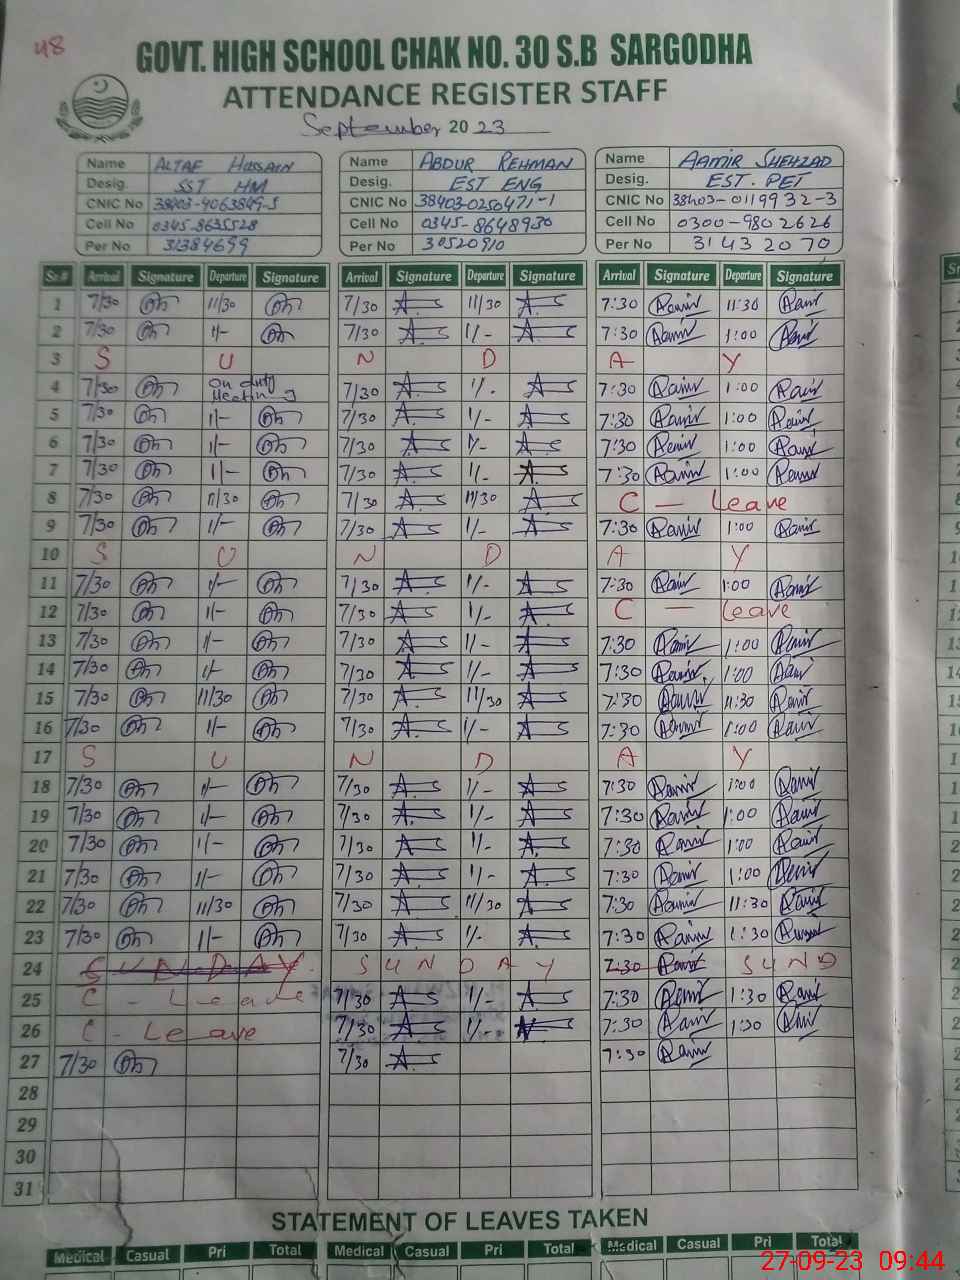 48
GOVT. HIGH SCHOOL CHAK NO. 30 S.B SARGODHA
ATTENDANCE REGISTER STAFF
September 2023
Name ALTAF HUSSAIN Name ABDUR REHMAN Name AAMIR SHEHZAD
Desig. SST HM Desig. EST ENG Desig. EST. PET
CNIC No 38403-4063849-5 CNIC No 38403-0250471-1 CNIC No 38403-0119932-3
Cell No 0345-8635528 Cell No 0345-8648930 Cell No 0300-9802626
Per No 31384699 Per No 30520910 Per No 31432070
Sr.# Arrival Signature Departure Signature Arrival Signature Departure Signature Arrival Signature Departure Signature
1 7/30 11/30 7/30 11/30 7:30 Aamir 11:30 Aamir
2 7/30 1/- 7/30 1/- 7:30 Aamir 1:00 Aamir
3 S U N D A Y
4 7/30 on duty Meeting 7/30 1/- 7:30 Aamir 1:00 Aamir
5 7/30 1/- 7/30 1/- 7:30 Aamir 1:00 Aamir
6 7/30 1/- 7/30 1/- 7:30 Aamir 1:00 Aamir
7 7/30 1/- 7/30 1/- 7:30 Aamir 1:00 Aamir
8 7/30 11/30 7/30 11/30 C - Leave
9 7/30 1/- 7/30 1/- 7:30 Aamir 1:00 Aamir
10 S U N D A Y
11 7/30 1/- 7/30 1/- 7:30 Aamir 1:00 Aamir
12 7/30 1/- 7/30 1/- C - Leave
13 7/30 1/- 7/30 1/- 7:30 Aamir 1:00 Aamir
14 7/30 1/- 7/30 1/- 7:30 Aamir 1:00 Aamir
15 7/30 11/30 7/30 11/30 7:30 Aamir 11:30 Aamir
16 7/30 1/- 7/30 1/- 7:30 Aamir 1:00 Aamir
17 S U N D A Y
18 7/30 1/- 7/30 1/- 7:30 Aamir 1:00 Aamir
19 7/30 1/- 7/30 1/- 7:30 Aamir 1:00 Aamir
20 7/30 1/- 7/30 1/- 7:30 Aamir 1:00 Aamir
21 7/30 1/- 7/30 1/- 7:30 Aamir 1:00 Aamir
22 7/30 11/30 7/30 11/30 7:30 Aamir 11:30 Aamir
23 7/30 1/- 7/30 1/- 7:30 Aamir 1:30 Aamir
24 SUNDAY SUNDAY 7:30 Aamir SUND
25 C - Leave 7/30 1/- 7:30 Aamir 1:30 Aamir
26 C - Leave 7/30 1/- 7:30 Aamir 1:30 Aamir
27 7/30 7/30 7:30 Aamir
28
29
30
31
STATEMENT OF LEAVES TAKEN
Medical Casual Pri Total Medical Casual Pri Total Medical Casual Pri Total
27-09-23 09:44